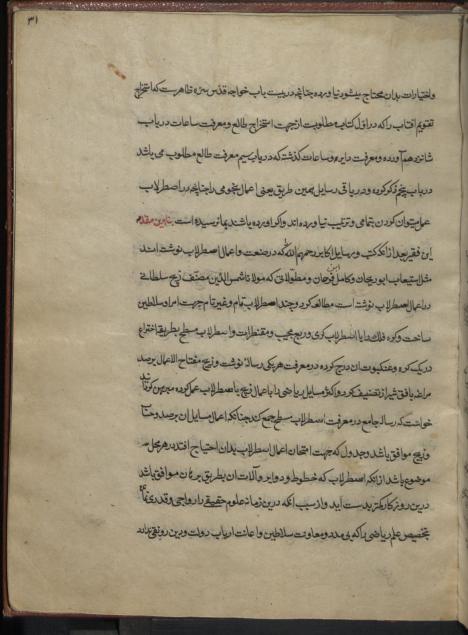 ۳۱
و اختیارات بدان محتاج میشود نیاورده چنانچه در بیست باب خواجه قدس سره ظاهرست که استخراج
تقویم آفتاب را که در اول کتاب مطلوبست از جهت استخراج طالع و معرفت ساعات در باب
شانزدهم آورده و معرفت دایره و ساعات گذشته که در باب سیم معرفت طالع مطلوب می باشد
در باب پنجم ذکر کرده و در باقی رسایل بهمین طریق یعنی اعمال نجومی را چنانچه در اصطرلاب
عمل میتوان کردن بتمامی و ترتیب نیاورده اند و اگر آورده باشند بما نرسیده است بنابرین مقدمه
این فقیر بعد از آنکه کتب و رسایل اکابر رحمهم الله را که در صنعت و اعمال اصطرلاب نوشته اند
مثل استیعاب ابوریحان و کامل ابن فرحان و مطولاتی که مولانا شمس الدین مصنف زیج سلطانی
در اعمال اصطرلاب نوشته است مطالعه کرد و چند اصطرلاب تمام و غیر تام جهت امرا و سلاطین
ساخت و کره فلک را با اصطرلاب کری و ربع مجیب و مقنطرات و اصطرلاب مسطح بطریق اختراع
در یک کره و عنکبوت آن درج کرده در معرفت هریکی رساله نوشت و زیج مفتاح الاعمال برصد
مراغه بافق شیراز تصنیف کرد و اکثر مسایل ریاضی را با عمال زیج با صطرلاب عمل کرده مبرهن گردانید
خواست که رساله جامع در معرفت اصطرلاب مسطح جمع کند چنانکه اعمال مسایل آن برصد و حساب
و زیج موافق باشد و جدول که جهت امتحان اعمال اصطرلاب بدان احتیاج افتد در هر محل
موضوع باشد از آنکه اصطرلاب که خطوط و دوایر و آلات آن بطریق برهان موافق باشد
درین روزگار کمتر بدست آید و از سبب آنکه درین زمانه علوم حقیقی را رواجی و قدری نمانده
بتخصیص علم ریاضی را که بی مدد و معاونت سلاطین و اعانت ارباب دولت و دین رونقی ندارد